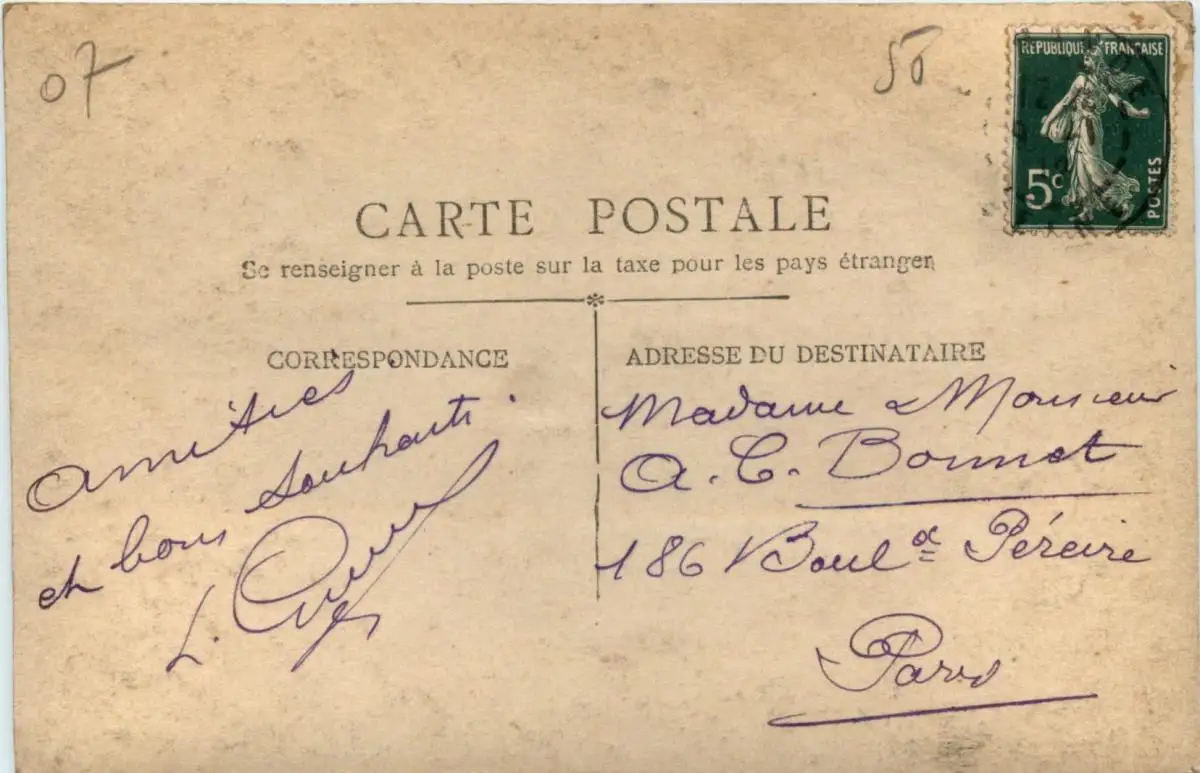 07
50
REPUBLIQUE FRANÇAISE
5c
POSTES
CARTE POSTALE
Se renseigner à la poste sur la taxe pour les pays étranger
CORRESPONDANCE
amitiés
et bons souhaits.
L.
ADRESSE DU DESTINATAIRE
Madame & Monsieur
A. C. Bonnet
186 Boul d Péreire
Paris